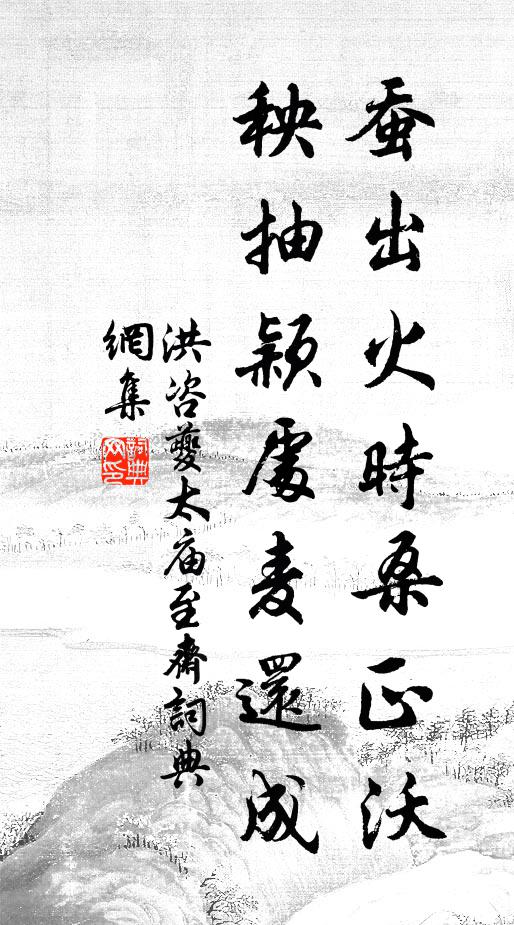 蚕出火時桑正沃
秧抽穎處麦還成
洪咨夔太庙至齋詞典
網集